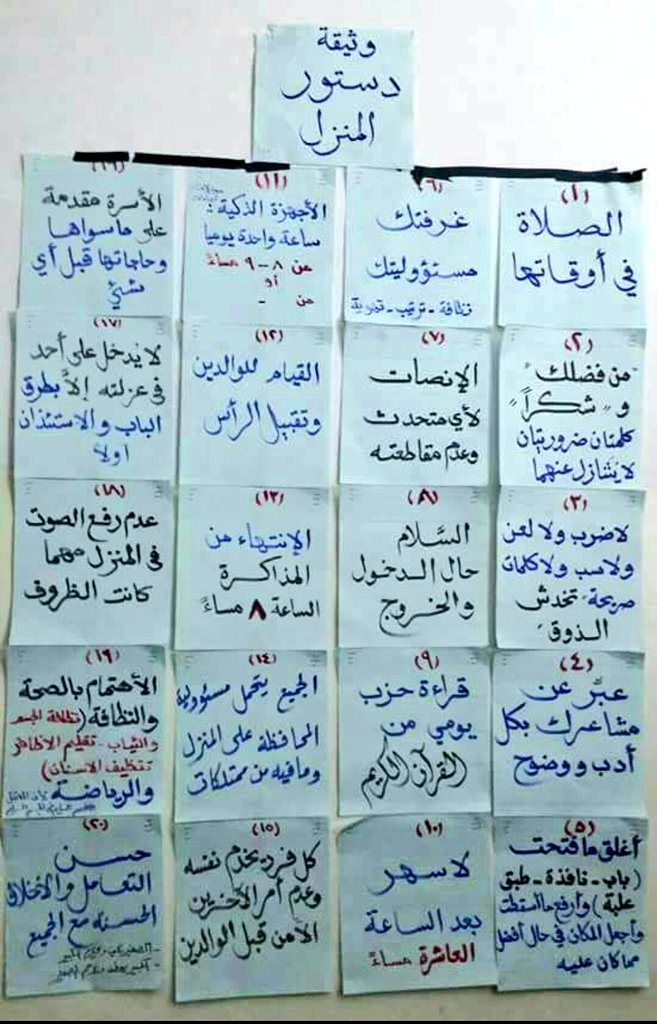 وثيقة
دستور
المنزل
(١)
الصلاة
في أوقاتها
(٢)
"من فضلك"
و "شكراً"
كلمتان ضروريتان
لا يتنازل عنهما
(٣)
لا ضرب ولا لعن
ولا سب ولا كلمات
صريحة تخدش
الذوق
(٤)
عبّر عن
مشاعرك بكل
أدب ووضوح
(٥)
أغلق ما فتحت
(باب - نافذة - طبق
علبة) وأرفع ما أسقطت
وأجعل المكان في حال أفضل
مما كان عليه
(٦)
غرفتك
مسئووليتك
نظافة - ترتيب - تهوية
(٧)
الإنصات
لأي متحدث
وعدم مقاطعته
(٨)
السَّلام
حال الدخول
والخروج
(٩)
قراءة حزب
يومي من
القرآن الكريم
(١٠)
لا سهر
بعد الساعة
العاشرة مساءً
(١١)
الأجهزة الذكية:
ساعة واحدة يوميا
من ٨ - ٩ مساءً
أو
من -
(١٢)
القيام للوالدين
وتقبيل الرأس
(١٣)
الإنتهاء من
المذاكرة
الساعة ٨ مساءً
(١٤)
الجميع يتحمل مسئوولية
المحافظة على المنزل
وما فيه من ممتلكات
(١٥)
كل فرد يخدم نفسه
وعدم أمر الآخرين
إلا من قبل الوالدين
(١٦)
الأسرة مقدمة
على ما سواها
وحاجاتها قبل أي
شئ
(١٧)
لا يدخل على أحد
في عزلته إلا بطرق
الباب والاستئذان
اولا
(١٨)
عدم رفع الصوت
في المنزل مهما
كانت الظروف
(١٩)
الأهتمام بالصحة
والنظافة (نظافة الجسم
والثياب - تقليم الأظافر
تنظيف الأسنان)
والرياضة
(٢٠)
حسن
التعامل والأخلاق
الحسنة مع الجميع